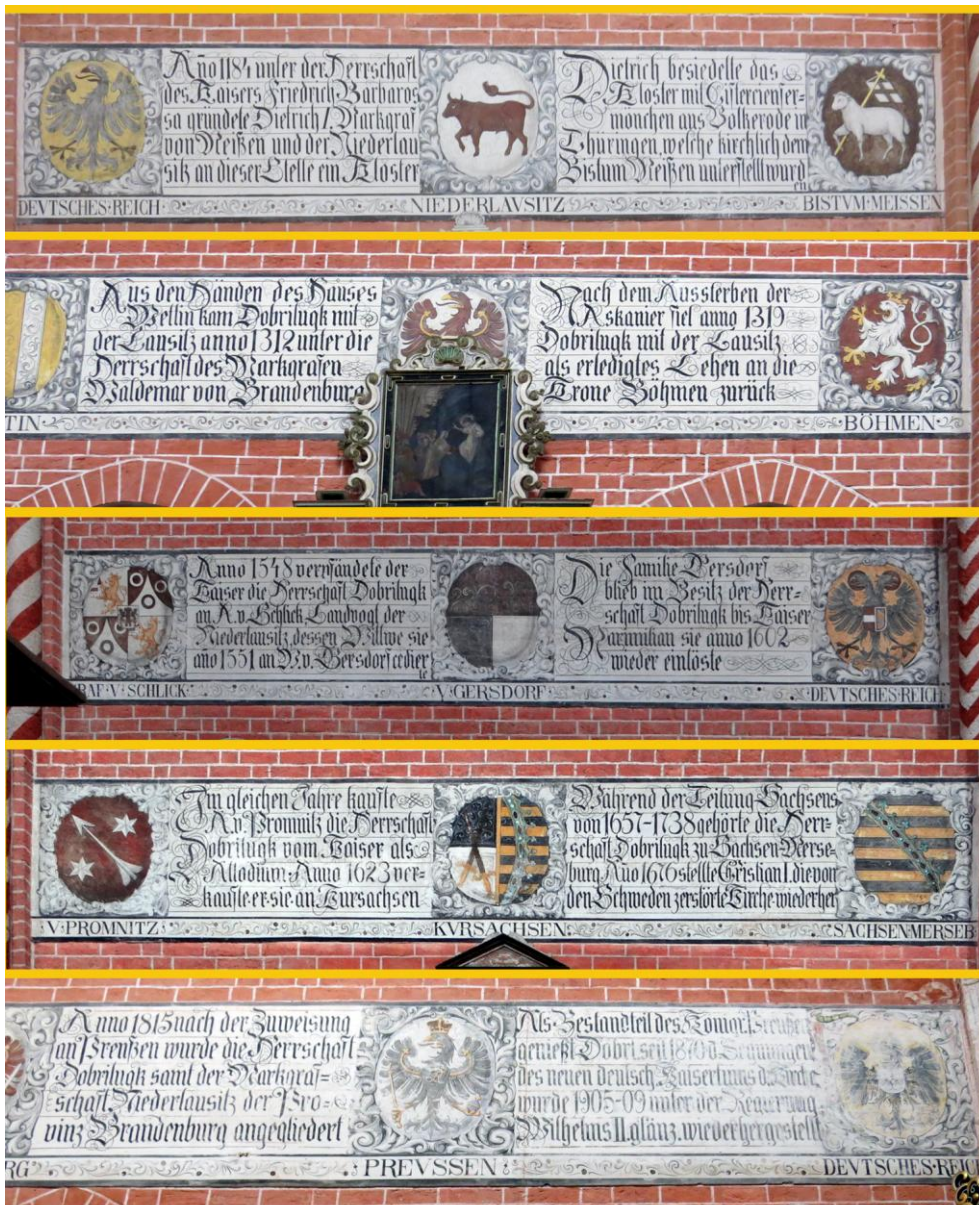 Año 1184 unter der Herrschaft
des Kaisers Friedrich Barbaros
sa gründete Dietrich I. Markgraf
von Meißen und der Niederlau
sitz an dieser Stelle ein Kloster
Dietrich besiedelte das
Kloster mit Cistercienser-
mönchen aus Volkerode in
Thüringen, welche kirchlich dem
Bistum Meißen unterstellt wurd
en
DEVTSCHES·REICH
NIEDERLAVSITZ
BISTVM·MEISSEN
Aus den Händen des Hauses
Wettin kam Dobrilugk mit
der Lausitz anno 1312 unter die
Herrschaft des Markgrafen
Waldemar von Brandenburg
Nach dem Aussterben der
Askanier fiel anno 1319
Dobrilugk mit der Lausitz
als erledigtes Lehen an die
Krone Böhmen zurück
TIN
BÖHMEN
Anno 1548 verpfändete der
Kaiser die Herrschaft Dobrilugk
an A. v. Schlick, Landvogt der
Niederlausitz, dessen Wittwe sie
año 1551 an N. v. Gersdorf cedier
te
Die Familie Gersdorf
blieb im Besitz der Herr-
schaft Dobrilugk bis Kaiser
Maximilian sie anno 1602
wieder einlöste
RAF·V·SCHLICK
V·GERSDORF
DEVTSCHES·REICH
Im gleichen Jahre kaufte
A. v. Promnitz die Herrschaft
Dobrilugk vom Kaiser als
Allodium. Anno 1623 ver-
kaufte er sie an Kursachsen
Während der Teilung Sachsens
von 1657-1738 gehörte die Herr-
schaft Dobrilugk zu Sachsen-Merse-
burg Año 1676 stellte Cristian I. die von
den Schweden zerstörte Kirche wieder her
V·PROMNITZ
KVRSACHSEN
SACHSEN·MERSEB
Anno 1815 nach der Zuweisung
an Preußen wurde die Herrschaft
Dobrilugk samt der Markgraf-
schaft Niederlausitz der Pro-
vinz Brandenburg angegliedert
Als Bestandteil des
genießt Dobril. seit 1870 d.
des neuen deutsch. Kaisertums d. Kirche
wurde 1905-09 unter der Regierung
Wilhelms II. glänz. wiederhergestellt
RG
PREVSSEN
DEVTSCHES·REIC